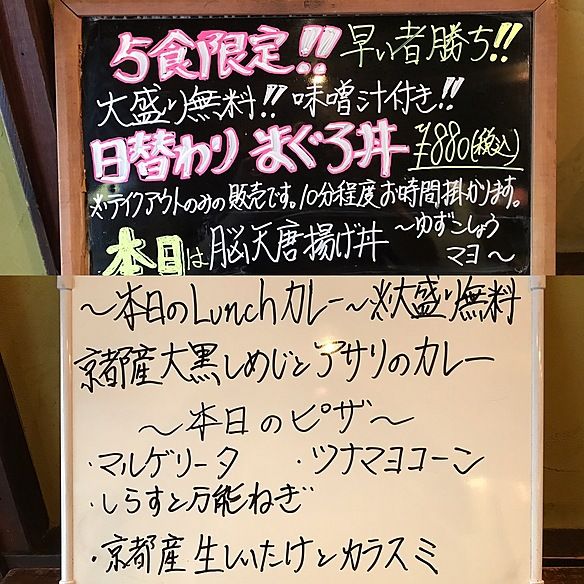 5食限定!! 早い者勝ち!!
大盛り無料!! 味噌汁付き!!
日替わり まぐろ丼 ¥880(税込)
※テイクアウトのみの販売です。10分程度お時間掛かります。
本日は脳天唐揚げ丼 〜ゆずこしょう
マヨ〜
〜本日のLunchカレー〜※大盛り無料
京都産大黒しめじとアサリのカレー
〜本日のピザ〜
・マルゲリータ ・ツナマヨコーン
・しらすと万能ねぎ
・京都産生しいたけとカラスミ